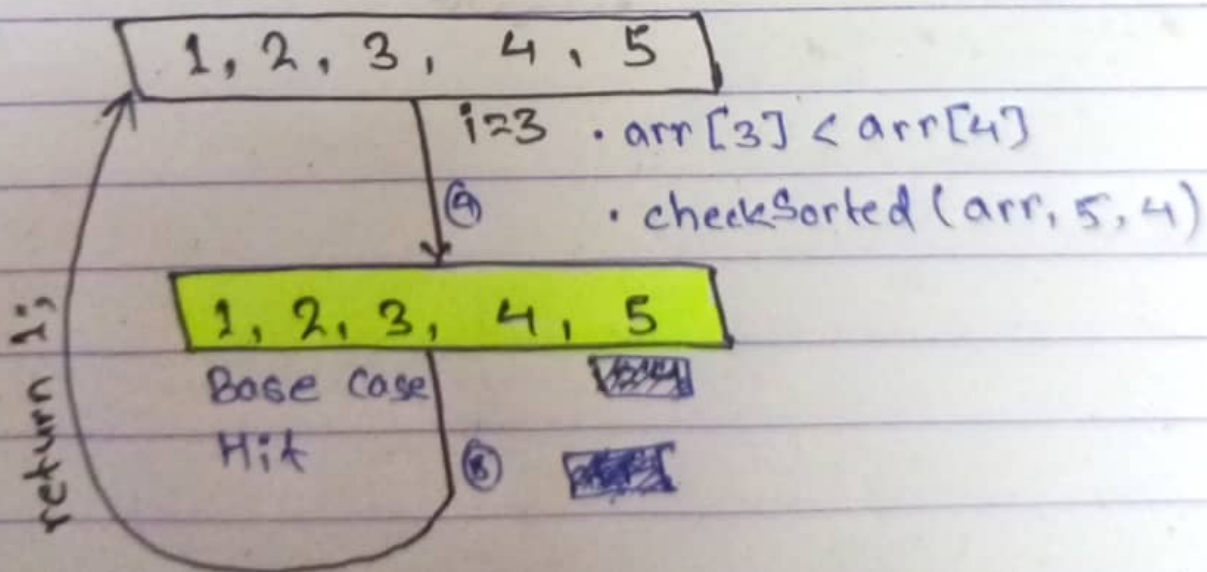 1, 2, 3, 4, 5
i=3 · arr[3] < arr[4]
④ · checkSorted(arr, 5, 4)
1, 2, 3, 4, 5
Base Case
Hit
return 1;